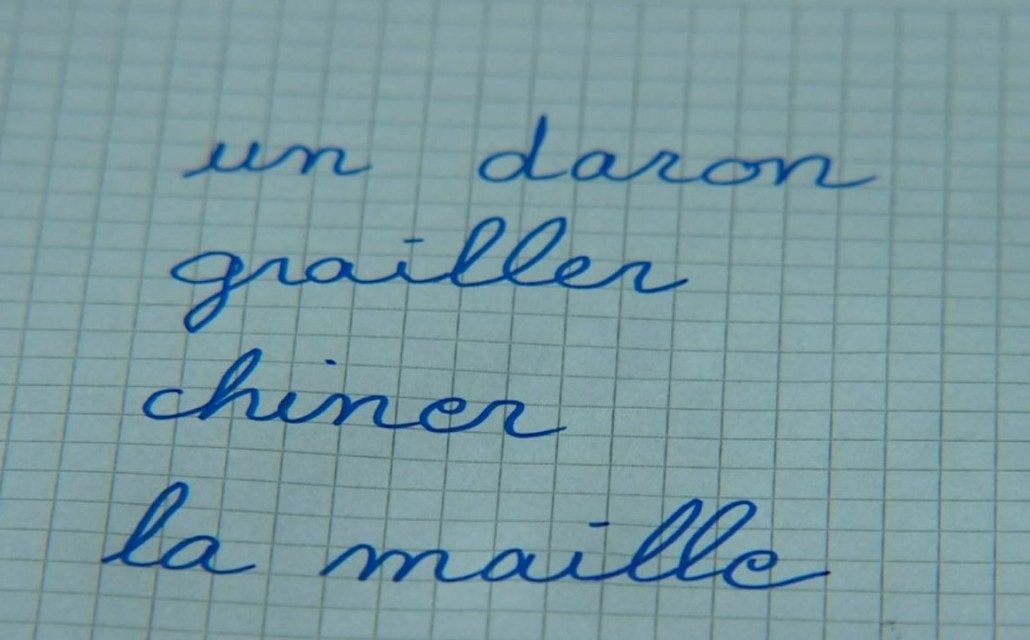 un daron
grailler
chiner
la maille